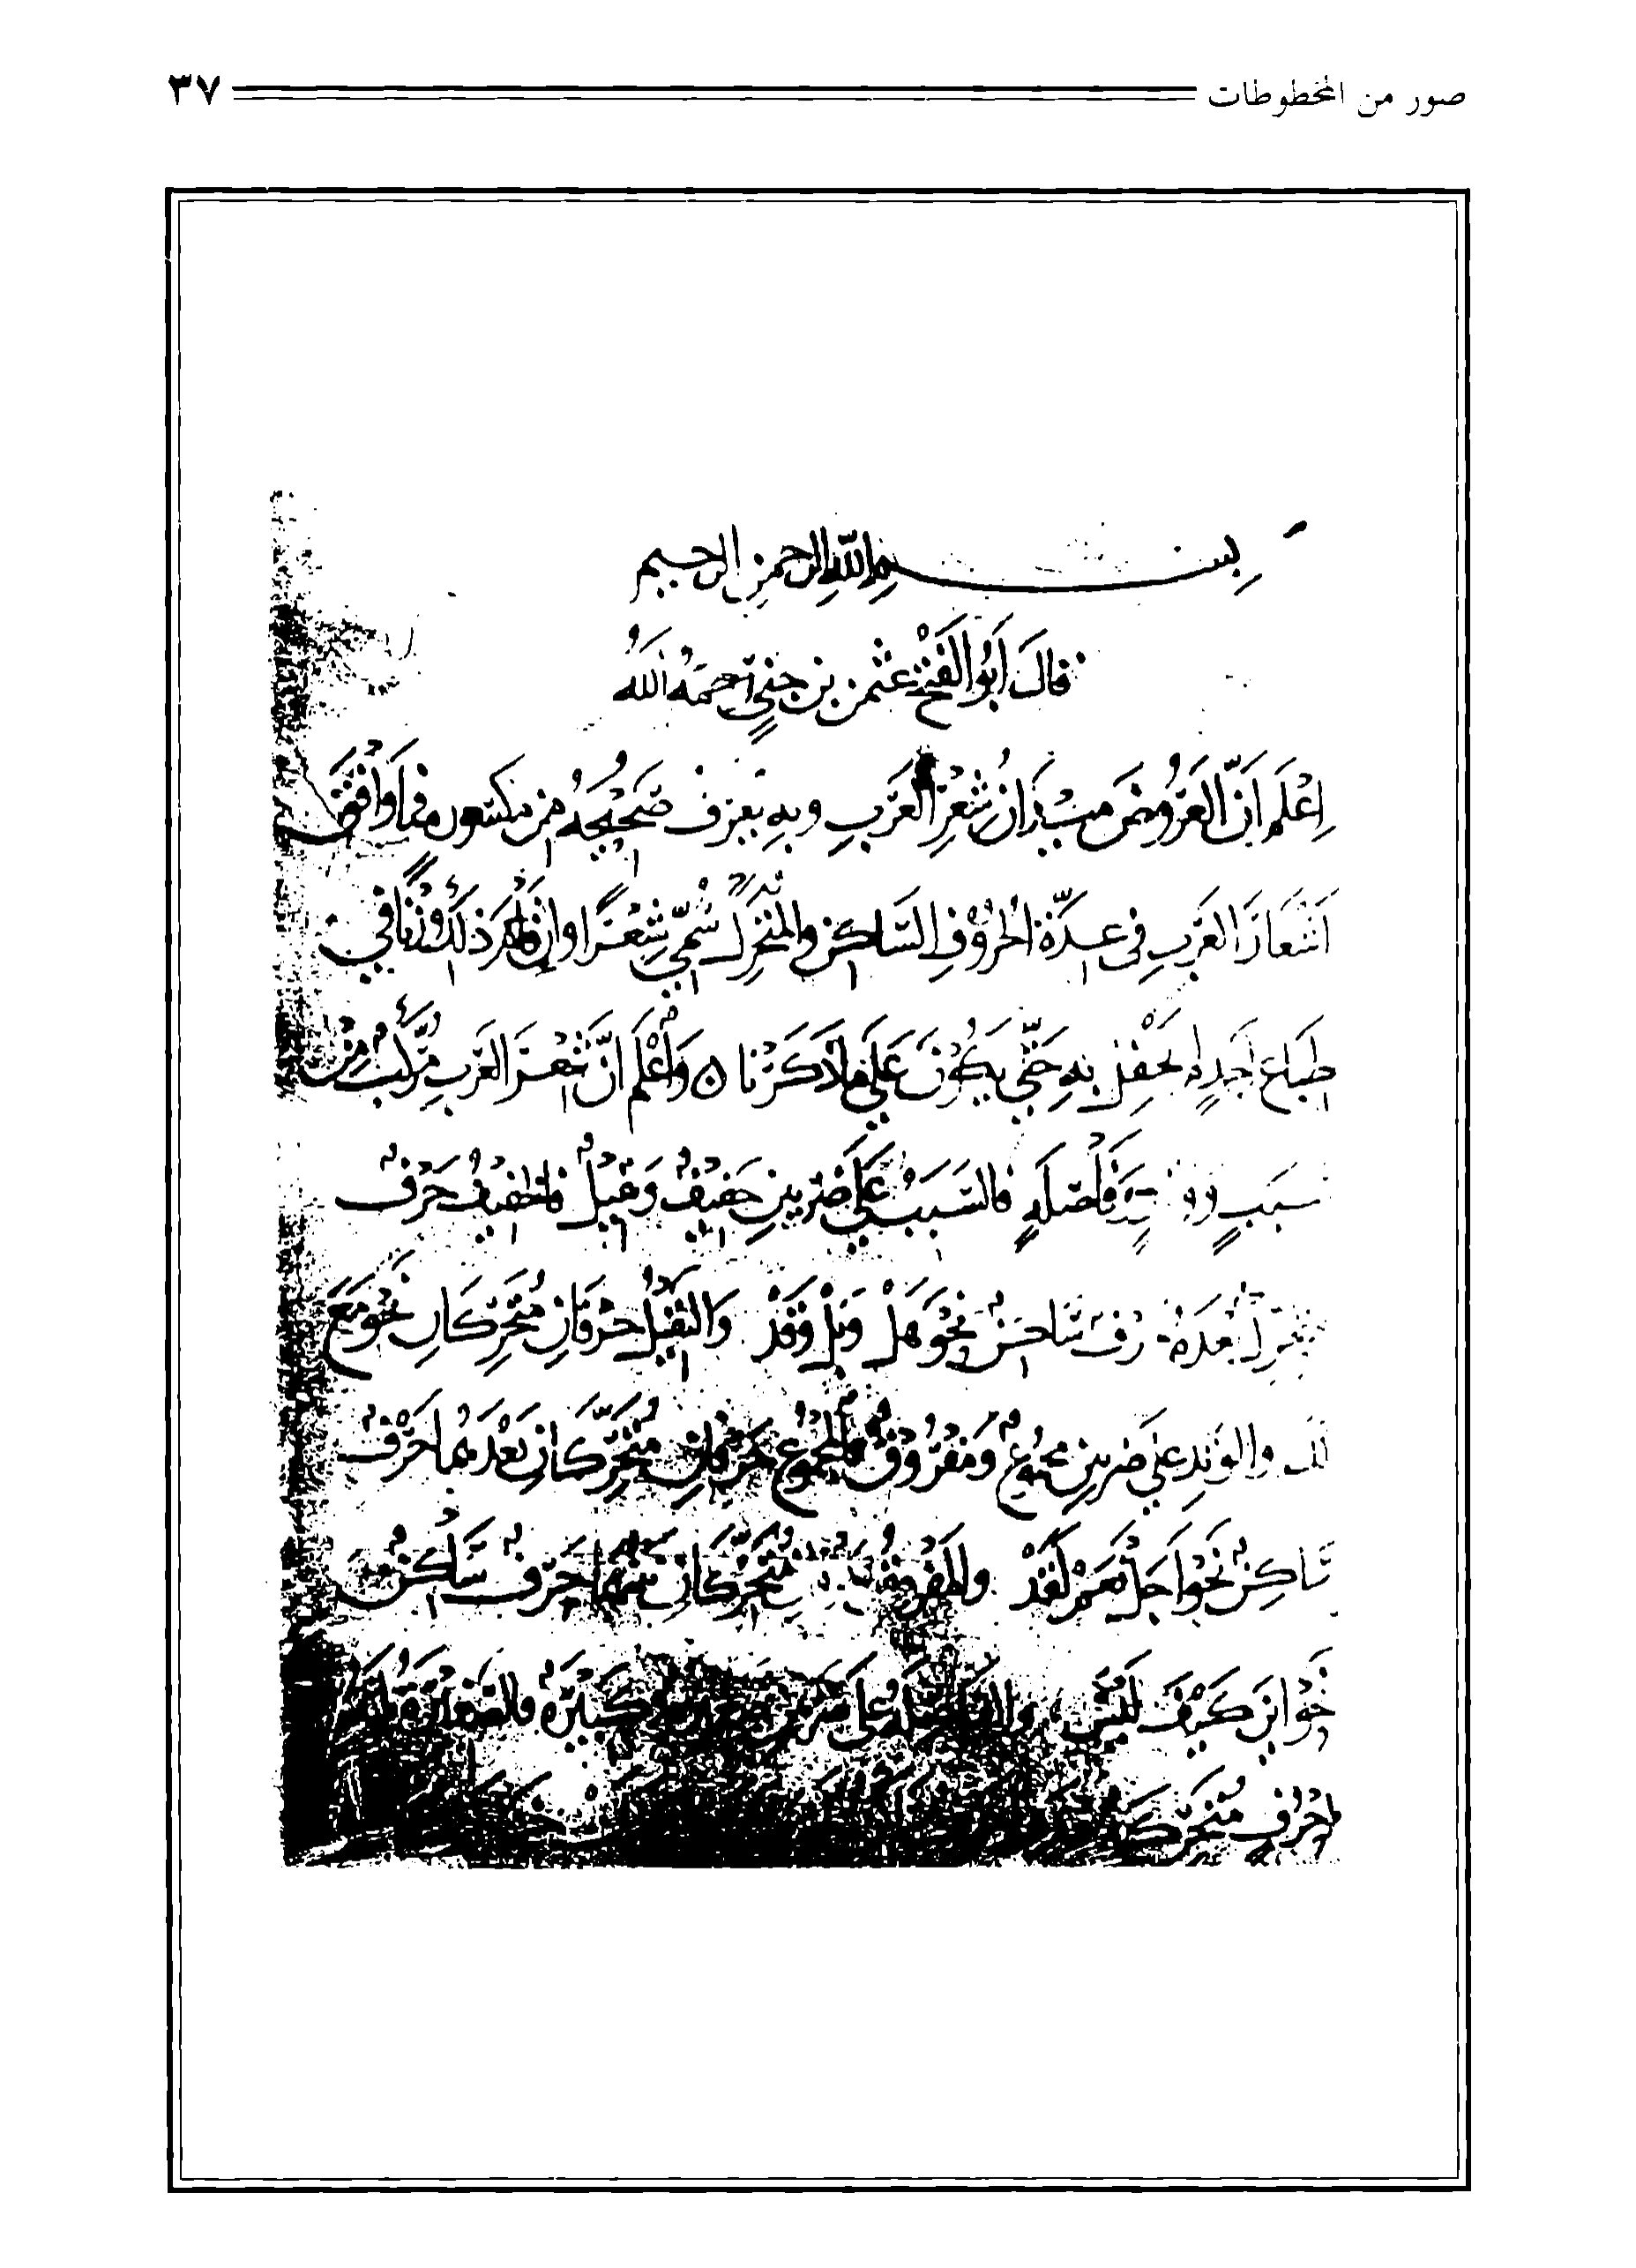 صور من المخطوطات ٣٧
بسم الله الرحمن الرحيم
قال أبو الفتح عثمن بن جني رحمه الله
اِعْلَم أنّ العَرُوضَ ميزانُ شِعْرِ العَرَبِ وبه يُعرف صَحِيْحُهُ من مكسوره فما وافق
اَشْعارَ العَرَبِ في عِدّة الحُرُوْفِ الساكن والمتحرك سُمّي شِعْرًا وان ذلك وزنًا في
طباع اَحَدٍ لم يحفل به حَتّى يكُوْنَ عَلَى مَا ذَكَرْنا ه وَاعْلَم انّ شِعْرَ العَرَب مركّب من
سببٍ و وفَاصِلَةٍ فالسَبَبُ عَلَى ضربين خَفِيْفٌ وثَقِيْلٌ فالخفيفُ حَرْفٌ
متحرك بَعدَهُ حرف سَاكِنٌ نحو هَلْ وبَلْ وقَدْ وَالثقيلُ حَرْفَانِ مُتَحَرّكانِ نحو مَعَ
لك والوتد على ضربين مجموع ومَفْرُوْقٌ فالمجموع حَرْفانِ مُتَحَرّكان بَعْدَهُما حَرْفٌ
سَاكِنٌ نحو اَجَلْ نَعَمْ لَقَدْ والمفروق مُتَحَرّكانِ بينهما حَرْفٌ سَاكِنٌ
نحو اَيْنَ كَيْفَ لَيْسَ والفاصلة على ضربين صغيرة وكَبِيْرَةٌ فالصغيرة
احرف متحركة